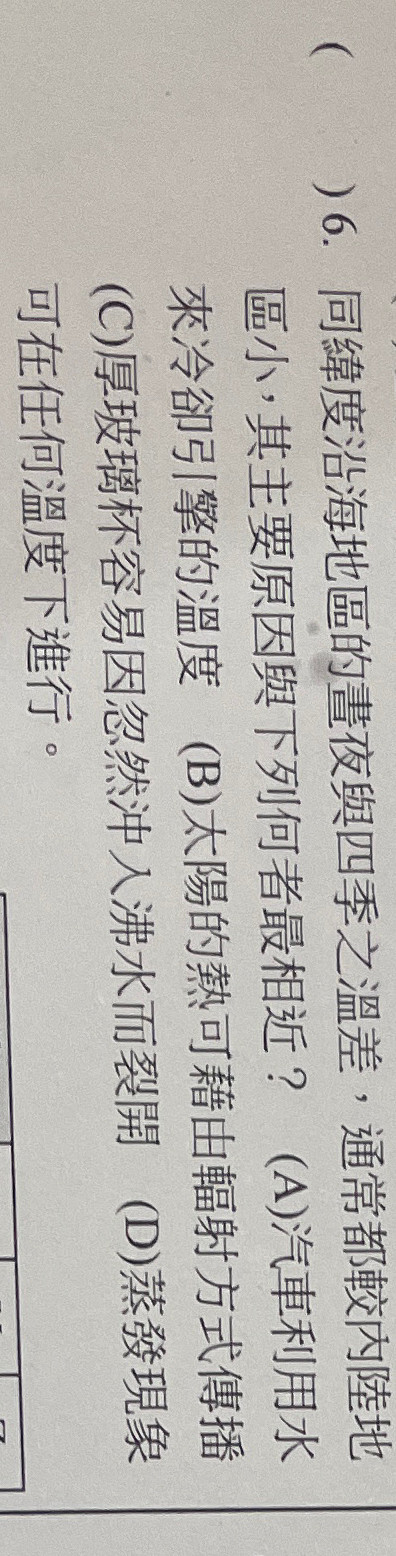 ( )6. 同緯度沿海地區的晝夜與四季之溫差，通常都較內陸地
區小，其主要原因與下列何者最相近？ (A)汽車利用水
來冷卻引擎的溫度 (B)太陽的熱可藉由輻射方式傳播
(C)厚玻璃杯容易因忽然沖入沸水而裂開 (D)蒸發現象
可在任何溫度下進行。